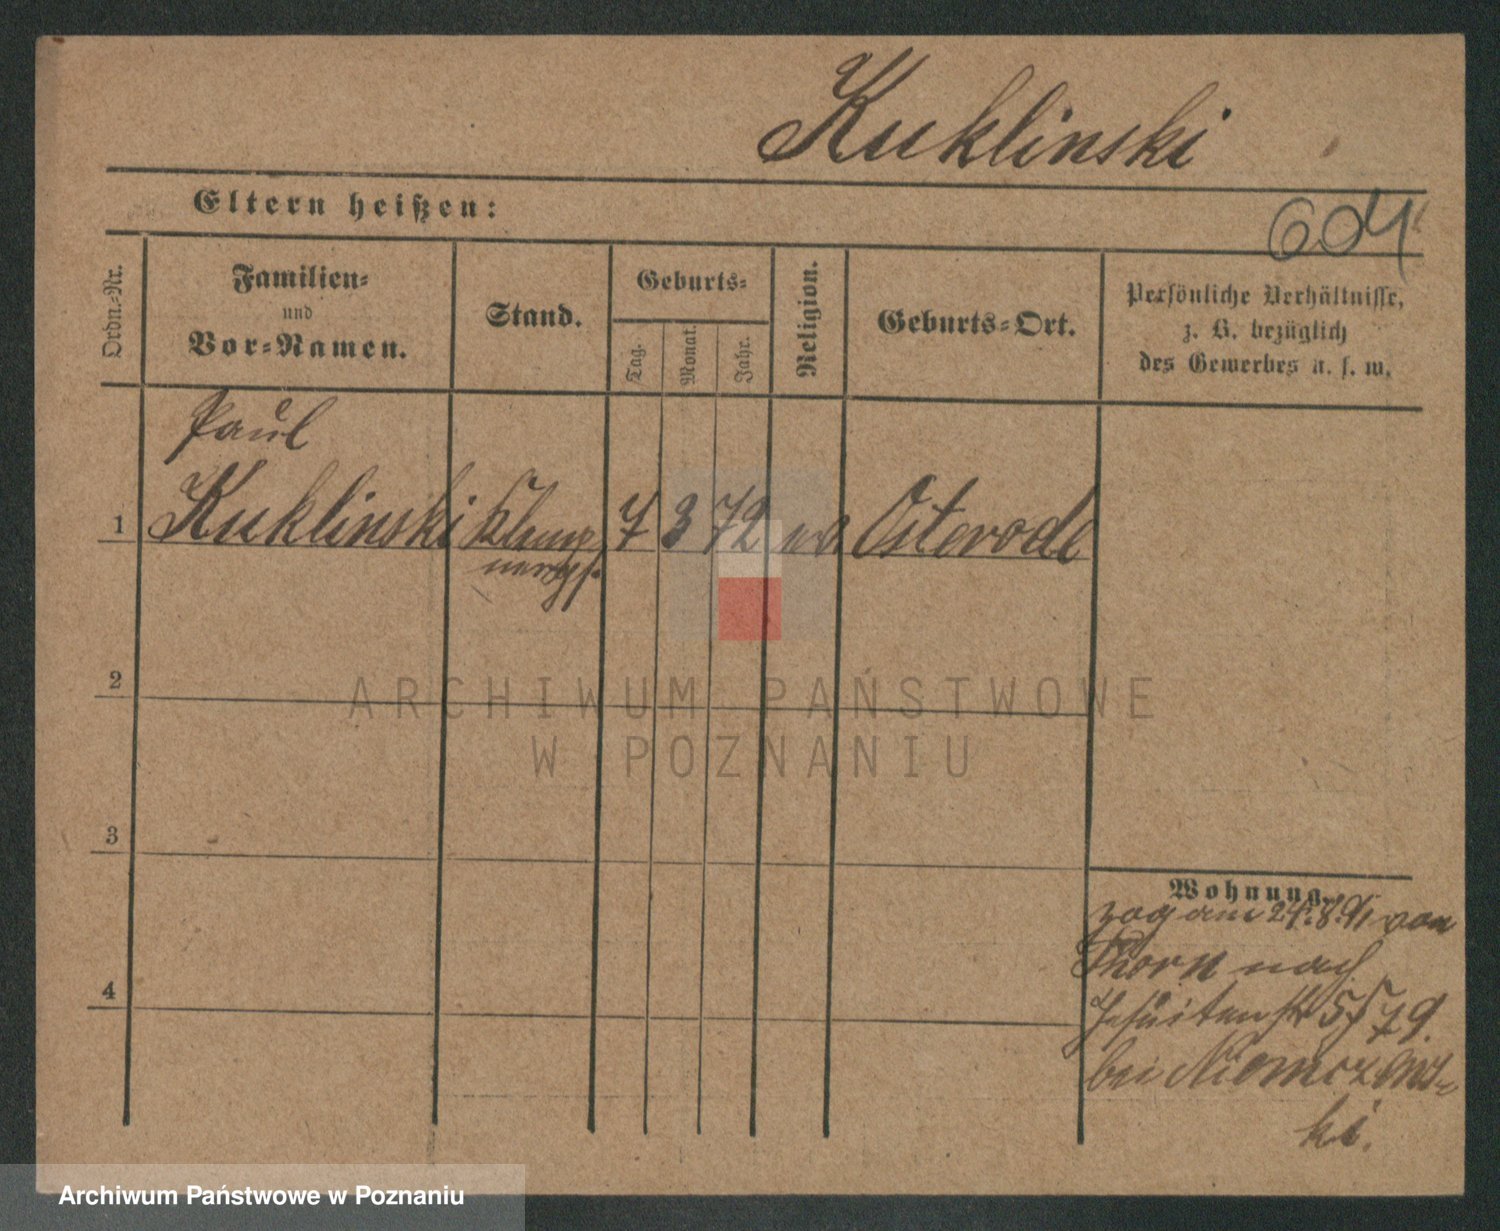 Kuklinski
604
Eltern heißen:
Ordn.-Nr.
Familien-
und
Vor-Namen.
Stand.
Geburts-
Tag.
Monat.
Jahr.
Religion.
Geburts-Ort.
Persönliche Verhältnisse,
z. B. bezüglich
des Gewerbes u. s. w.
Paul
1 Kuklinski Klemp 7 3 72 Osterode
nerges.
2
3
4
Wohnung.
zog am 24.8.91 von
Thorn nach
Jesuitenstr 5
bei Niemczews-
ki.
ARCHIWUM PAŃSTWOWE
W POZNANIU
Archiwum Państwowe w Poznaniu